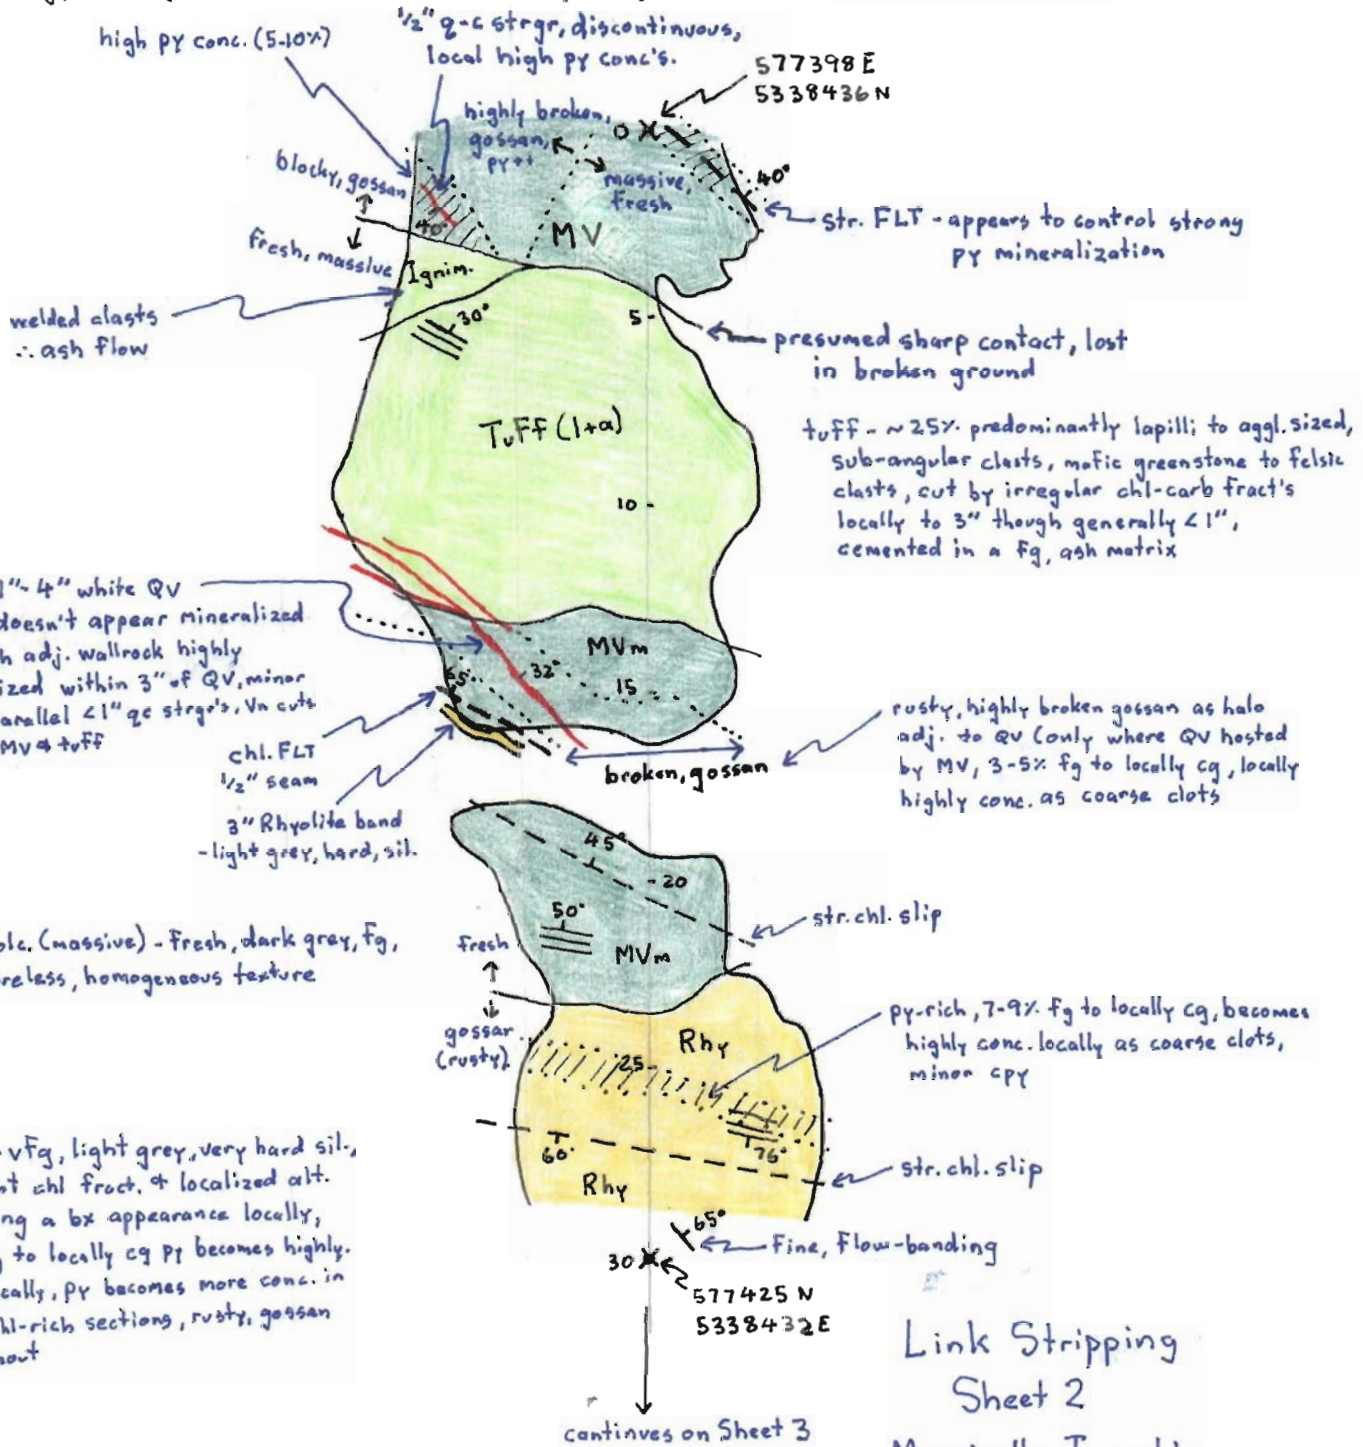 high py conc. (5-10%)
1/2" q-c strgr, discontinuous,
local high py conc's.
577398 E
5338436 N
highly broken,
gossan,
py++
0
massive,
fresh
40°
blocky, gossan
40°
MV
str. FLT - appears to control strong
py mineralization
fresh, massive
Ignim.
welded clasts
∴ ash flow
30°
5
presumed sharp contact, lost
in broken ground
Tuff (l+a)
tuff - ~25% predominantly lapilli to aggl. sized,
sub-angular clasts, mafic greenstone to felsic
clasts, cut by irregular chl-carb fract's
locally to 3" though generally <1",
cemented in a fg, ash matrix
10
1"-4" white QV
doesn't appear mineralized
adj. wallrock highly
within 3" of QV, minor
<1" qc strgr's, Vn cuts
MV & tuff
MVm
32°
15
chl. FLT
1/2" seam
broken, gossan
rusty, highly broken gossan as halo
adj. to QV (only where QV hosted
by MV, 3-5% fg to locally cg, locally
highly conc. as coarse clots
3" Rhyolite band
- light grey, hard, sil.
45°
20
str. chl. slip
50°
MVm
(massive) - Fresh, dark grey, fg,
homogeneous texture
fresh
gossan
(rusty)
Rhy
25
py-rich, 7-9% fg to locally cg, becomes
highly conc. locally as coarse clots,
minor cpy
60°
76°
str. chl. slip
Rhy
vfg, light grey, very hard sil.,
chl fract. & localized alt.
a bx appearance locally,
to locally cg py becomes highly.
py becomes more conc. in
sections, rusty, gossan
65°
Fine, Flow-banding
30
577425 N
5338432 E
Link Stripping
Sheet 2
continues on Sheet 3